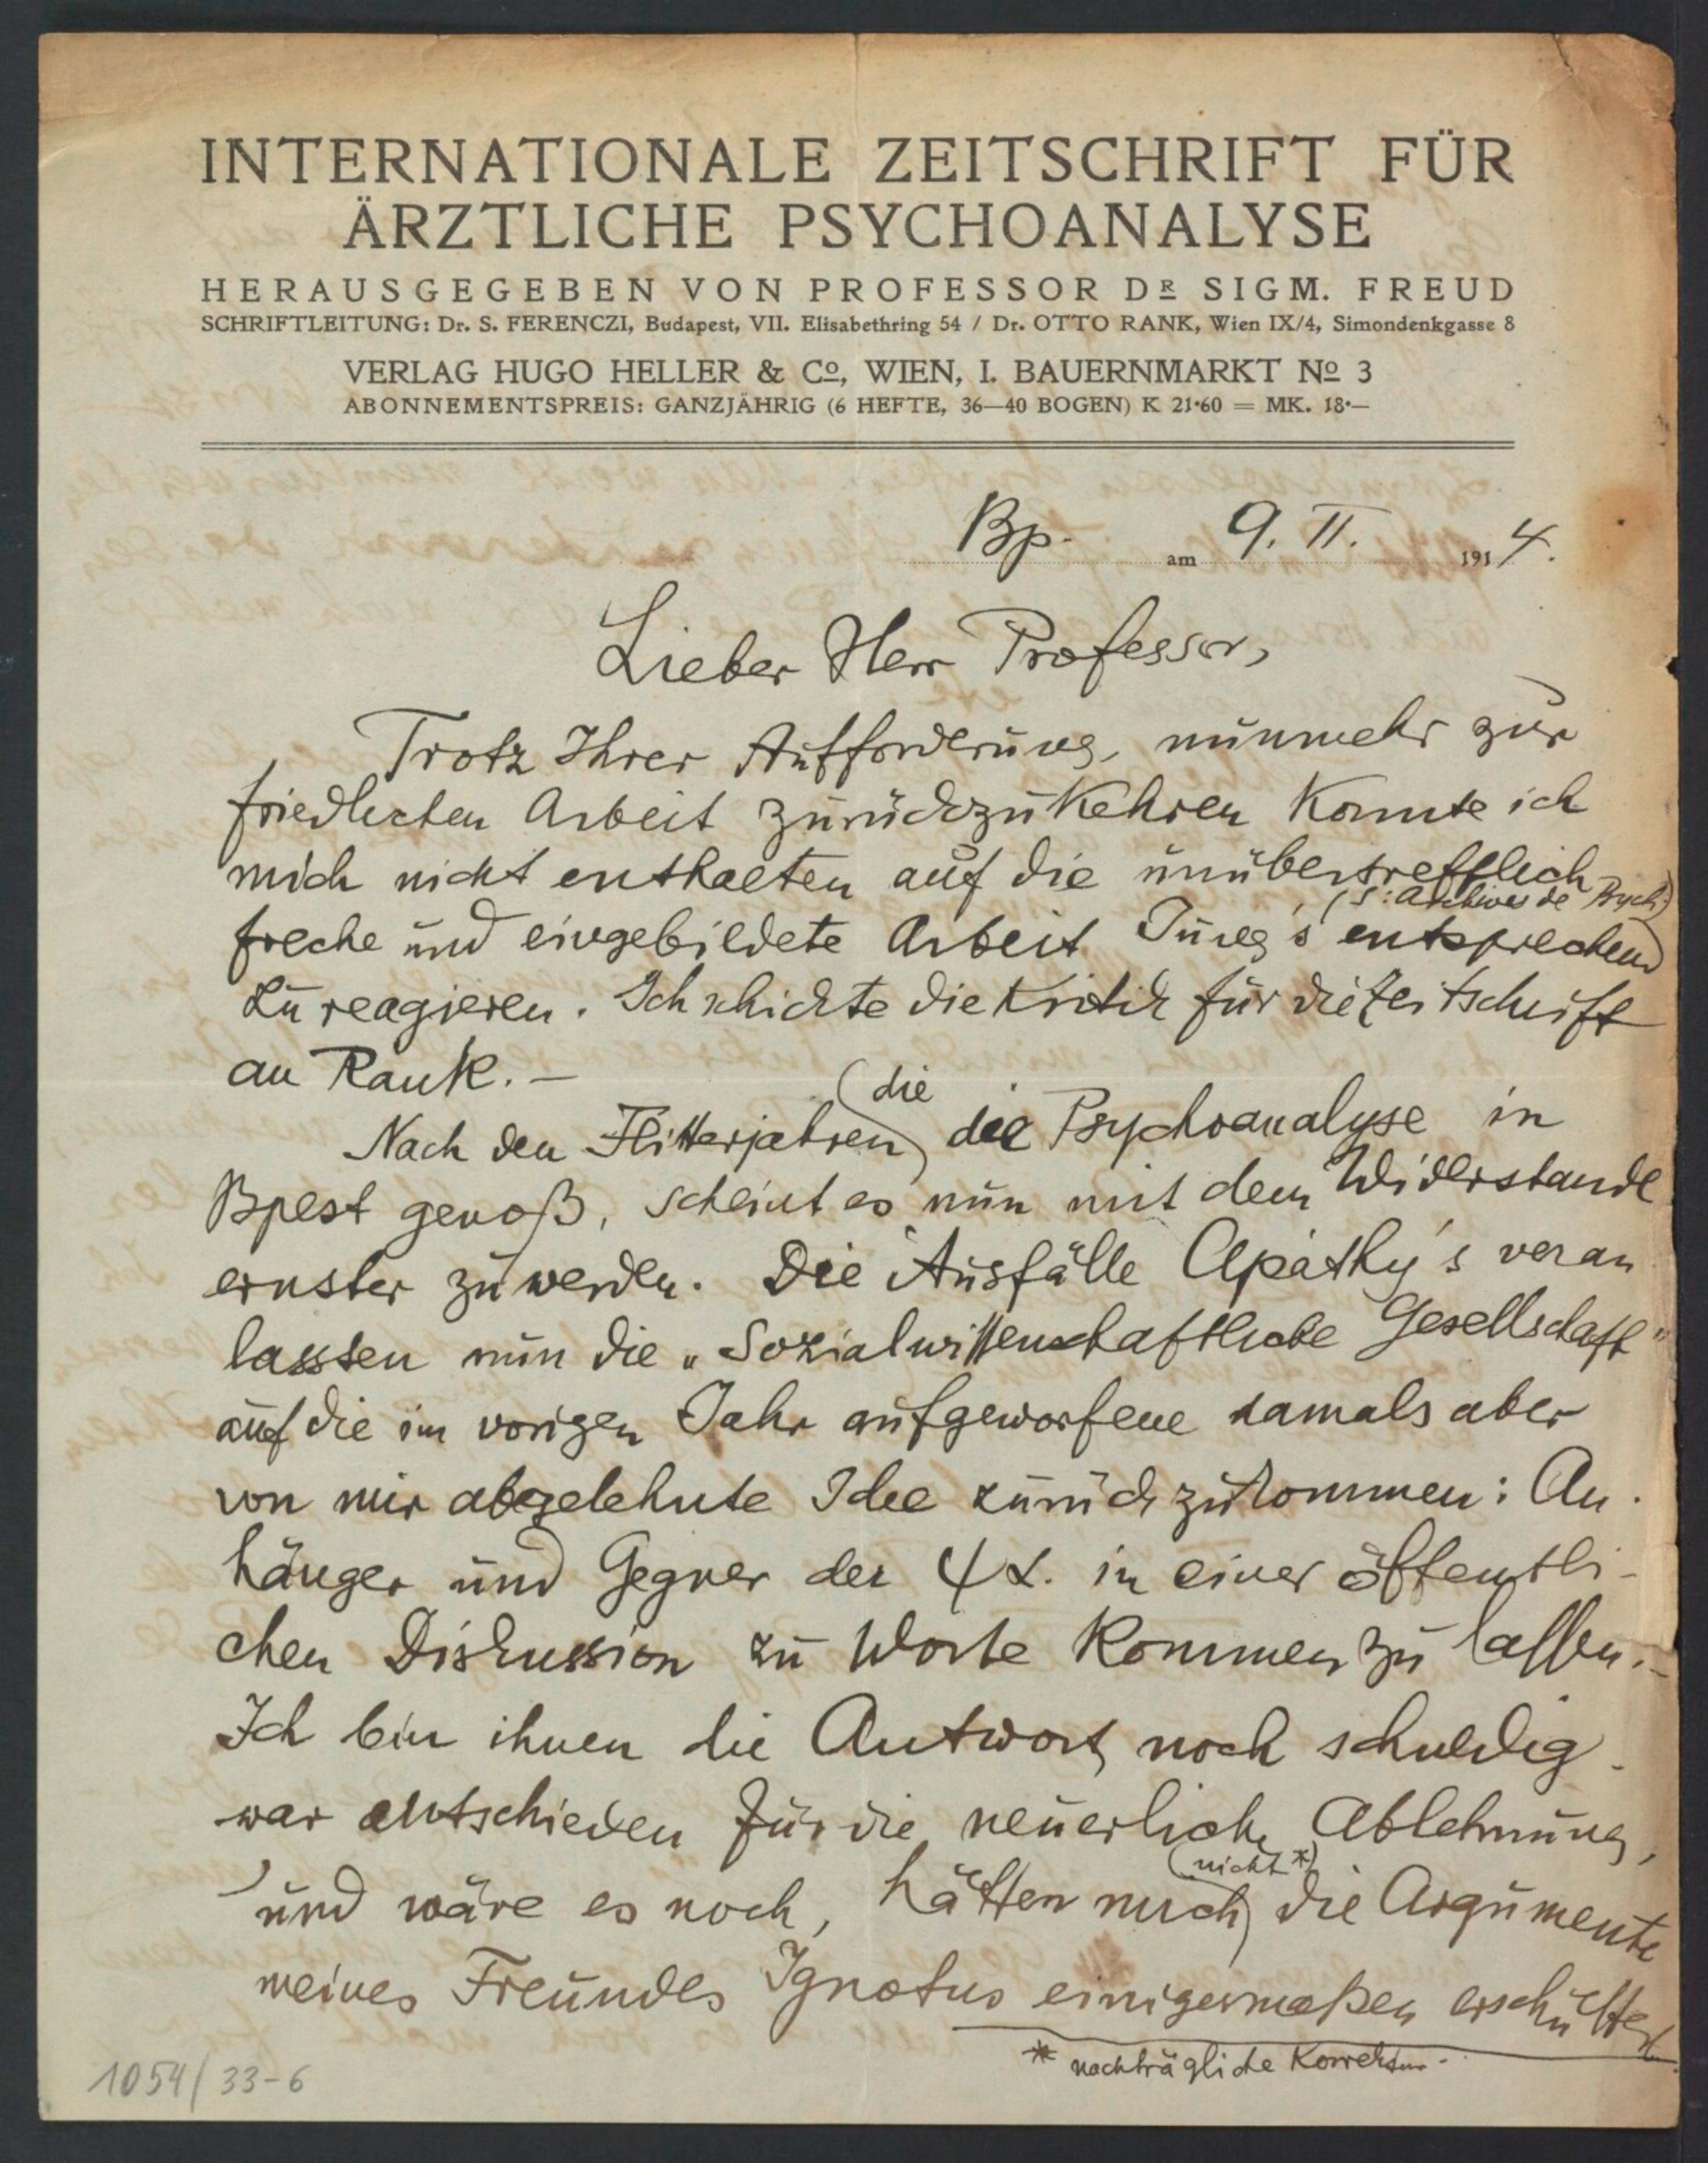 INTERNATIONALE ZEITSCHRIFT FÜR
ÄRZTLICHE PSYCHOANALYSE
HERAUSGEGEBEN VON PROFESSOR DR SIGM. FREUD
SCHRIFTLEITUNG: Dr. S. FERENCZI, Budapest, VII. Elisabethring 54 / Dr. OTTO RANK, Wien IX/4, Simondenkgasse 8
VERLAG HUGO HELLER & Co, WIEN, I. BAUERNMARKT No 3
ABONNEMENTSPREIS: GANZJÄHRIG (6 HEFTE, 36—40 BOGEN) K 21·60 = MK. 18·—
Bp. am 9. II. 1914.
Lieber Herr Professor,
Trotz Ihrer Aufforderung, nunmehr zur
friedlichen Arbeit zurückzukehren konnte ich
mich nicht enthalten auf die unübertrefflich
(s: Archives de Psych.)
freche und eingebildete Arbeit Jung's entsprechend
zu reagieren. Ich schickte die Kritik für die Zeitschrift
an Rank.—
die
Nach den Flitterjahren die Psychoanalyse in
Bpest genoß, scheint es nun mit dem Widerstande
ernster zu werden. Die Ausfälle Apáthy's veran
lassten nun die „Sozialwissenschaftliche Gesellschaft"
auf die im vorigen Jahr aufgeworfene damals aber
von mir abgelehnte Idee zurückzukommen: An-
hänger und Gegner der ψα. in einer öffentli-
chen Diskussion zu Worte kommen zu lassen.—
Ich bin ihnen die Antwort noch schuldig.
war entschieden für die neuerliche Ablehnung,
(nicht*)
und wäre es noch, hätten mich die Argumente
meines Freundes Ignotus einigermaßen erschüttert.
* nachträgliche Korrektur.
1054/33-6